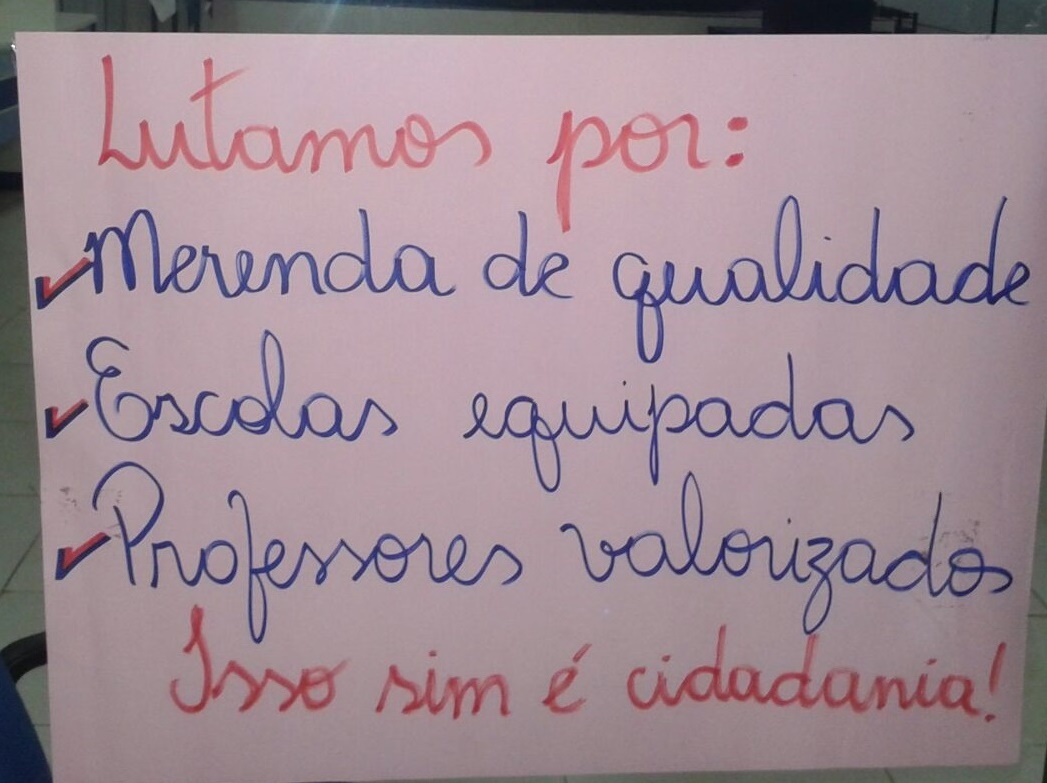 Lutamos por:
✓Merenda de qualidade
✓Escolas equipadas
✓Professores valorizados
Isso sim é cidadania!